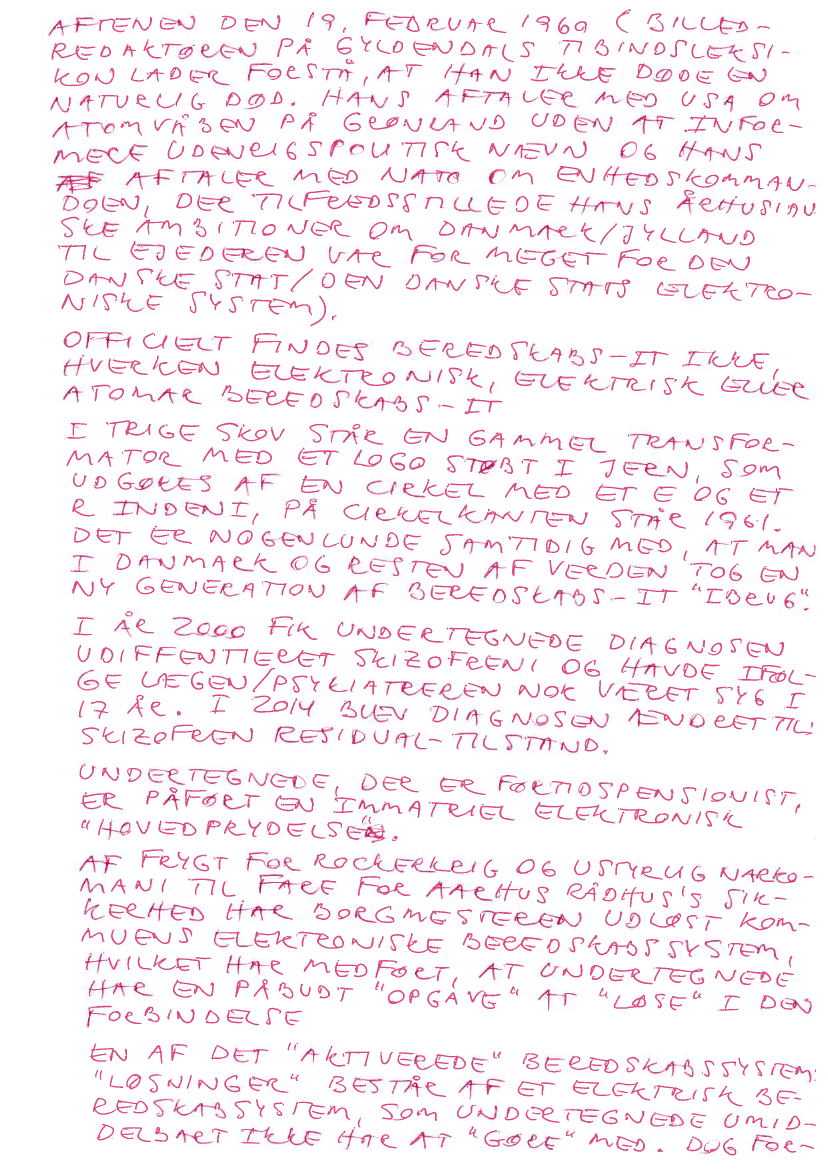 AFTENEN DEN 19. FEBRUAR 1960 (BILLED-
REDAKTØREN PÅ GYLDENDALS TIBINDSLEKSI-
KON LADER FORSTÅ, AT HAN IKKE DØDE EN
NATURLIG DØD. HANS AFTALER MED USA OM
ATOMVÅBEN PÅ GRØNLAND UDEN AT INFOR-
MERE UDENRIGSPOLITISK NÆVN OG HANS
AFTALER MED NATO OM ENHEDSKOMMAN-
DOEN, DER TILFREDSSTILLEDE HANS ÅRHUSIAN
SKE AMBITIONER OM DANMARK/JYLLAND
TIL EJEDEREN VAR FOR MEGET FOR DEN
DANSKE STAT/DEN DANSKE STATS ELEKTRO-
NISKE SYSTEM).
OFFICIELT FINDES BEREDSKABS-IT IKKE,
HVERKEN ELEKTRONISK, ELEKTRISK ELLER
ATOMAR BEREDSKABS-IT
I TRIGE SKOV STÅR EN GAMMEL TRANSFOR-
MATOR MED ET LOGO STØBT I JERN, SOM
UDGØRES AF EN CIRKEL MED ET E OG ET
R INDENI, PÅ CIRKELKANTEN STÅR 1961.
DET ER NOGENLUNDE SAMTIDIG MED, AT MAN
I DANMARK OG RESTEN AF VERDEN TOG EN
NY GENERATION AF BEREDSKABS-IT "IBRUG".
I ÅR 2000 FIK UNDERTEGNEDE DIAGNOSEN
UDIFFENTIERET SKIZOFRENI OG HAVDE IFØL-
GE LÆGEN/PSYKIATREREN NOK VÆRET SYG I
17 ÅR. I 2014 BLEV DIAGNOSEN ÆNDRET TIL
SKIZOFREN RESIDUAL-TILSTAND.
UNDERTEGNEDE, DER ER FØRTIDSPENSIONIST,
ER PÅFØRT EN IMMATRIEL ELEKTRONISK
"HOVEDPRYDELSE".
AF FRYGT FOR ROCKERKRIG OG USTYRLIG NARKO-
MANI TIL FARE FOR AARHUS RÅDHUS'S SIK-
KERHED HAR BORGMESTEREN UDLØST KOM-
MUENS ELEKTRONISKE BEREDSKABSSYSTEM,
HVILKET HAR MEDFØRT, AT UNDERTEGNEDE
HAR EN PÅBUDT "OPGAVE" AT "LØSE" I DEN
FORBINDELSE
EN AF DET "AKTIVEREDE" BEREDSKABSSYSTEMS
"LØSNINGER" BESTÅR AF ET ELEKTRISK BE-
REDSKABSSYSTEM, SOM UNDERTEGNEDE UMID-
DELBART IKKE HAR AT "GØRE" MED. DOG FOR-